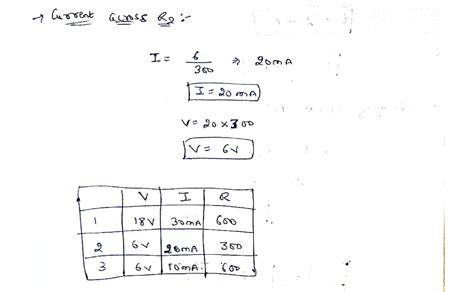 → Current across R2 :-
I = 6/300 ⇒ 20mA
I = 20mA
V = 20 x 300
V = 6V
V I R
1 18V 30mA 600
2 6V 20mA 300
3 6V 10mA 600